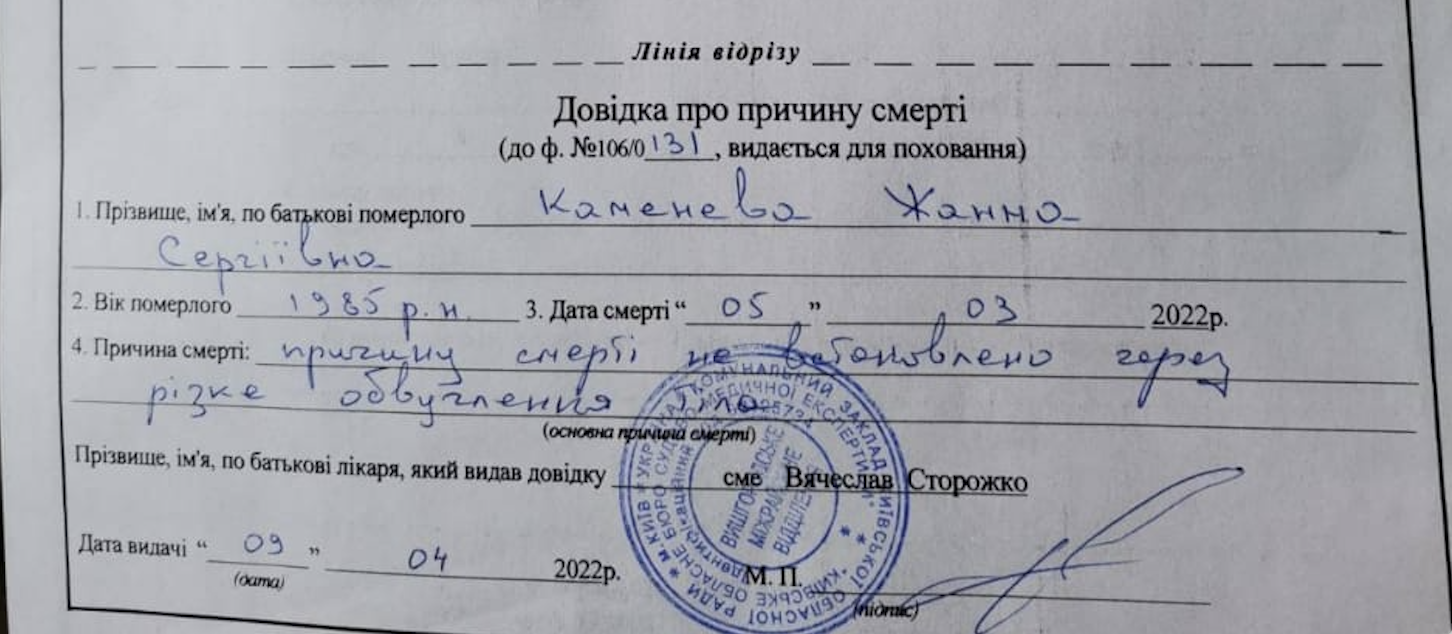 Лінія відрізу
Довідка про причину смерті
(до ф. №106/0 131, видається для поховання)
1. Прізвище, ім'я, по батькові померлого Каменева Жанна
Сергіївна
2. Вік померлого 1985 р.н. 3. Дата смерті “ 05 ” 03 2022р.
4. Причина смерті: причину смерті не встановлено через
різке обвуглення тіла
(основна причина смерті)
Прізвище, ім'я, по батькові лікаря, який видав довідку сме Вячеслав Сторожко
Дата видачі “ 09 ” 04 2022р. М. П.
(дата) (підпис)
* м.КИЇВ * УКРАЇНА * КОМУНАЛЬНИЙ ЗАКЛАД КИЇВСЬКОЇ ОБЛАСНОЇ РАДИ *
"КИЇВСЬКЕ ОБЛАСНЕ БЮРО СУДОВО-МЕДИЧНОЇ ЕКСПЕРТИЗИ"
ВІДДІЛЕННЯ